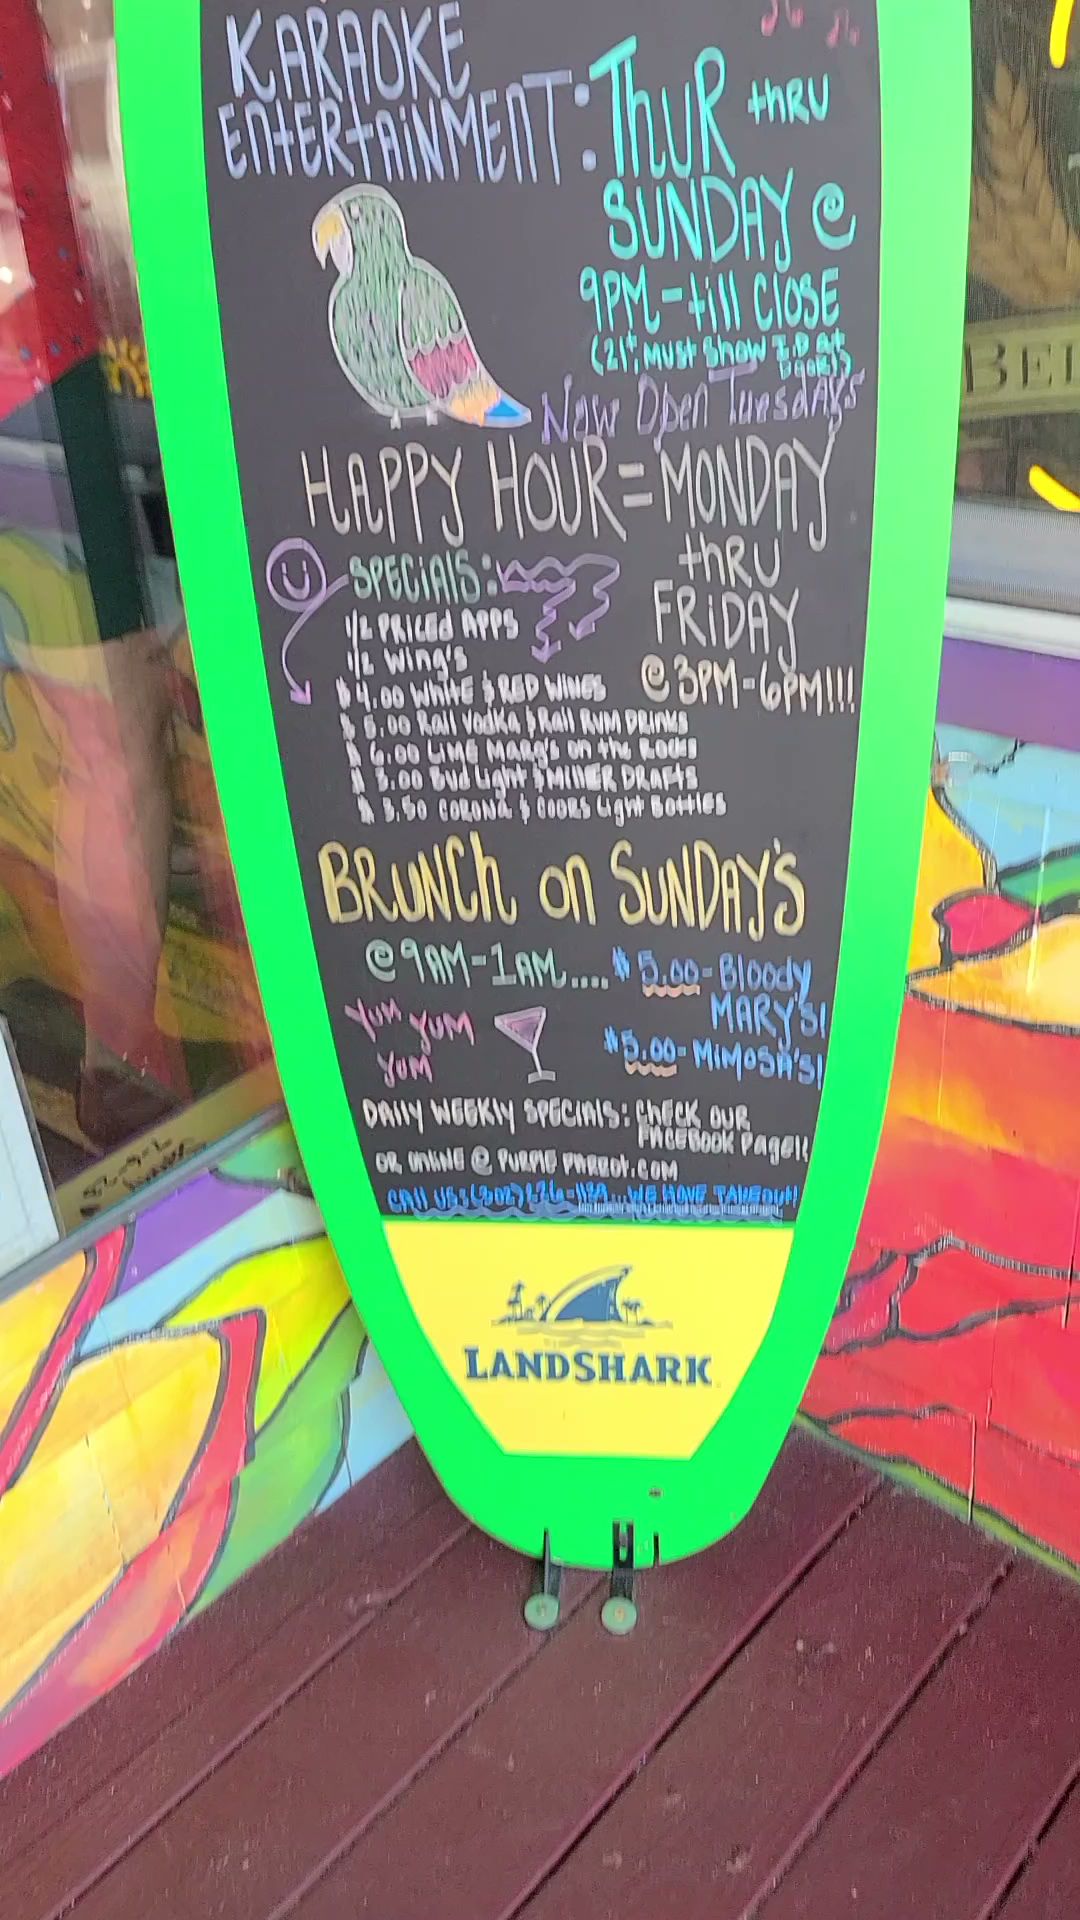 KARAOKE
ENTERTAINMENT: THUR thru
SUNDAY @
9PM - till CLOSE
(21+, MUST Show I.D at
DOOR!)
Now Open Tuesdays
HAPPY HOUR = MONDAY
thRU
FRIDAY
@ 3PM - 6PM!!!
SPECIALS:
1/2 PRICED APPS
1/2 Wing's
$4.00 White & RED WINES
$5.00 Rail Vodka & Rail RUM DRINKS
$6.00 LIME Marg's on the Rocks
$3.00 Bud Light & MILLER DRAFTS
$3.50 CORONA & COORS Light Bottles
BRUNCH on SUNDAY'S
@ 9AM - 1AM....
$5.00 - Bloody
MARY'S!
$5.00 - MIMOSA'S!
YUM YUM
YUM
DAILY WEEKLY SPECIALS: CHECK OUR
FACEBOOK Page!!
OR ONLINE @ PURPLE PARROT.COM
CALL US: (302) 226- WE HAVE TAKEOUT!
LANDSHARK